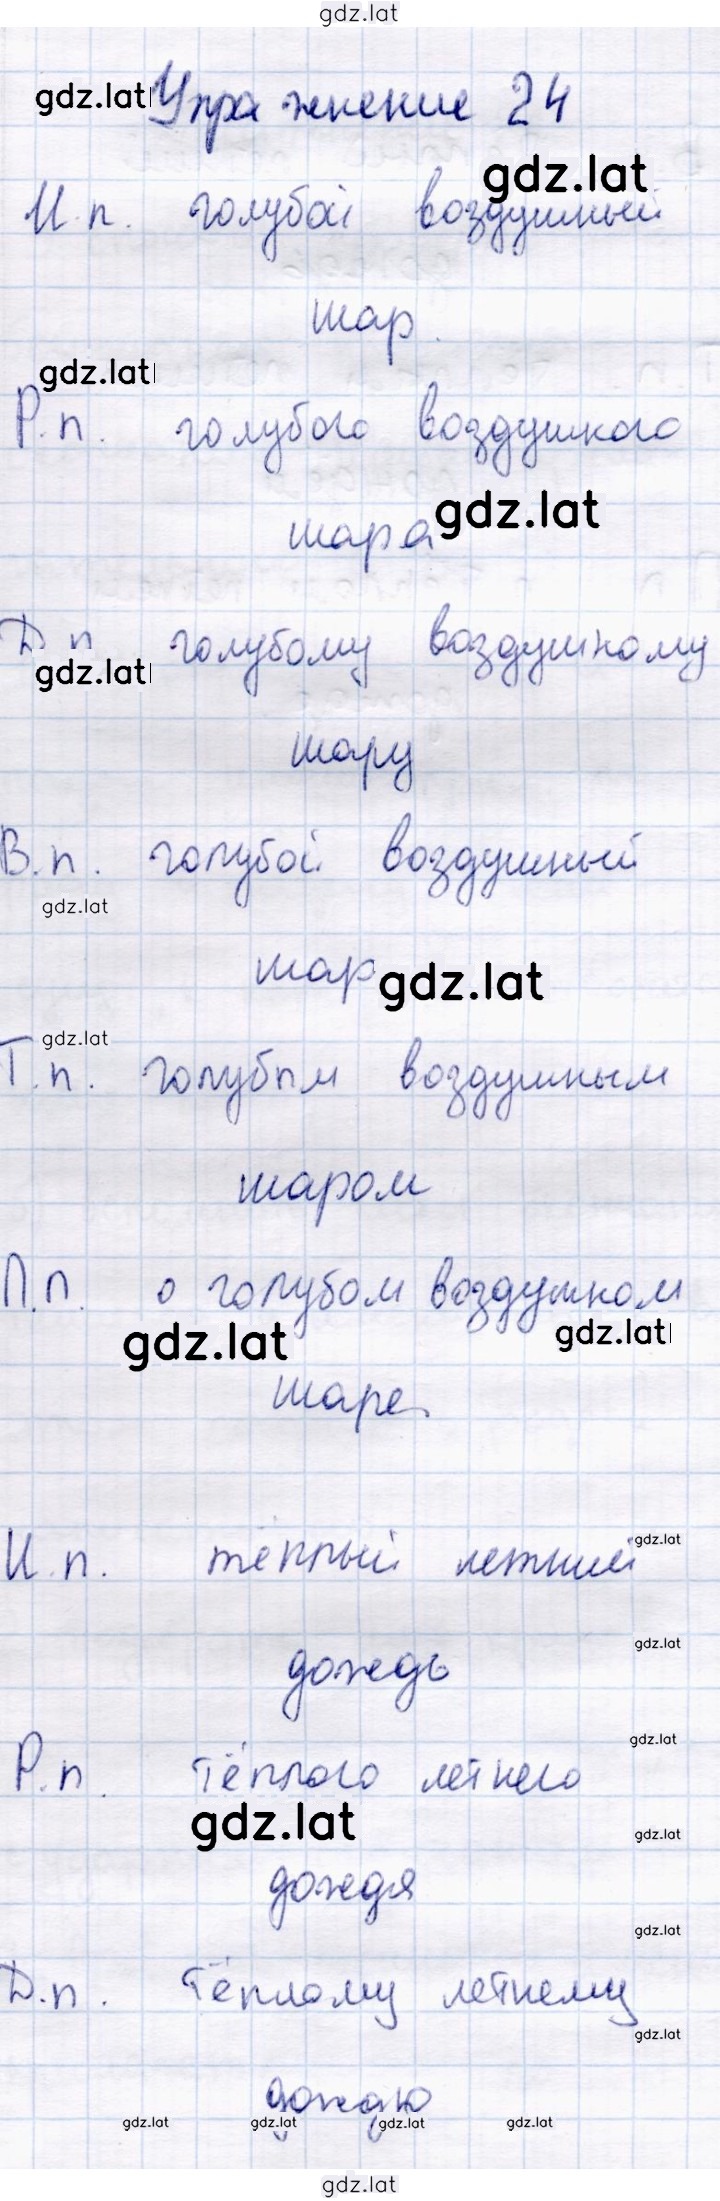 gdz.lat
gdz.lat Упражнение 24
gdz.lat
И.п. голубой воздушный
шар.
gdz.lat
Р.п. голубого воздушного
gdz.lat
шара
Д.п. голубому воздушному
gdz.lat
шару
В.п. голубой воздушный
gdz.lat
шар gdz.lat
gdz.lat
Т.п. голубым воздушным
шаром
П.п. о голубом воздушном
gdz.lat gdz.lat
шаре
gdz.lat
И.п. тёплый летний
gdz.lat
дождь
gdz.lat
Р.п. тёплого летнего
gdz.lat gdz.lat
дождя
gdz.lat
Д.п. тёплому летнему
gdz.lat
дождю
gdz.lat gdz.lat gdz.lat gdz.lat
gdz.lat